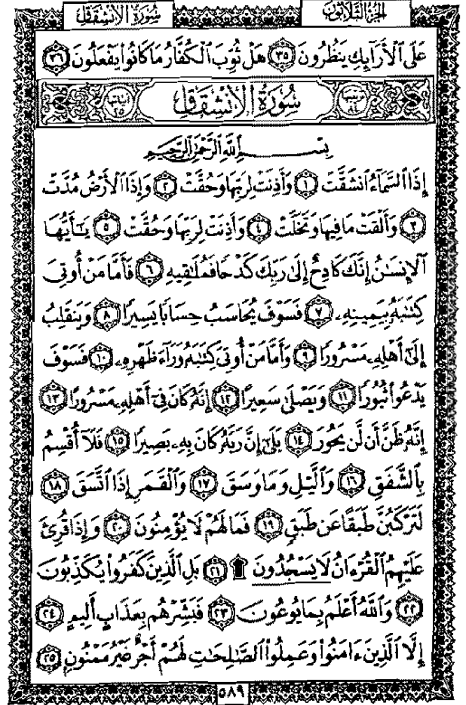 الجزء الثلاثون سُورَةُ الانْشِقَاقِ
عَلَى ٱلْأَرَآئِكِ يَنظُرُونَ ٣٥ هَلْ ثُوِّبَ ٱلْكُفَّارُ مَا كَانُوا۟ يَفْعَلُونَ ٣٦
ترتيبها ٨٤ سُورَةُ الانْشِقَاقِ آياتها ٢٥
بِسْمِ ٱللَّهِ ٱلرَّحْمَٰنِ ٱلرَّحِيمِ
إِذَا ٱلسَّمَآءُ ٱنشَقَّتْ ١ وَأَذِنَتْ لِرَبِّهَا وَحُقَّتْ ٢ وَإِذَا ٱلْأَرْضُ مُدَّتْ
٣ وَأَلْقَتْ مَا فِيهَا وَتَخَلَّتْ ٤ وَأَذِنَتْ لِرَبِّهَا وَحُقَّتْ ٥ يَٰٓأَيُّهَا
ٱلْإِنسَٰنُ إِنَّكَ كَادِحٌ إِلَىٰ رَبِّكَ كَدْحًا فَمُلَٰقِيهِ ٦ فَأَمَّا مَنْ أُوتِىَ
كِتَٰبَهُۥ بِيَمِينِهِۦ ٧ فَسَوْفَ يُحَاسَبُ حِسَابًا يَسِيرًا ٨ وَيَنقَلِبُ
إِلَىٰٓ أَهْلِهِۦ مَسْرُورًا ٩ وَأَمَّا مَنْ أُوتِىَ كِتَٰبَهُۥ وَرَآءَ ظَهْرِهِۦ ١٠ فَسَوْفَ
يَدْعُوا۟ ثُبُورًا ١١ وَيَصْلَىٰ سَعِيرًا ١٢ إِنَّهُۥ كَانَ فِىٓ أَهْلِهِۦ مَسْرُورًا ١٣
إِنَّهُۥ ظَنَّ أَن لَّن يَحُورَ ١٤ بَلَىٰٓ إِنَّ رَبَّهُۥ كَانَ بِهِۦ بَصِيرًا ١٥ فَلَآ أُقْسِمُ
بِٱلشَّفَقِ ١٦ وَٱلَّيْلِ وَمَا وَسَقَ ١٧ وَٱلْقَمَرِ إِذَا ٱتَّسَقَ ١٨
لَتَرْكَبُنَّ طَبَقًا عَن طَبَقٍ ١٩ فَمَا لَهُمْ لَا يُؤْمِنُونَ ٢٠ وَإِذَا قُرِئَ
عَلَيْهِمُ ٱلْقُرْءَانُ لَا يَسْجُدُونَ ۩ ٢١ بَلِ ٱلَّذِينَ كَفَرُوا۟ يُكَذِّبُونَ
٢٢ وَٱللَّهُ أَعْلَمُ بِمَا يُوعُونَ ٢٣ فَبَشِّرْهُم بِعَذَابٍ أَلِيمٍ ٢٤
إِلَّا ٱلَّذِينَ ءَامَنُوا۟ وَعَمِلُوا۟ ٱلصَّٰلِحَٰتِ لَهُمْ أَجْرٌ غَيْرُ مَمْنُونٍۭ ٢٥
٥٨٩